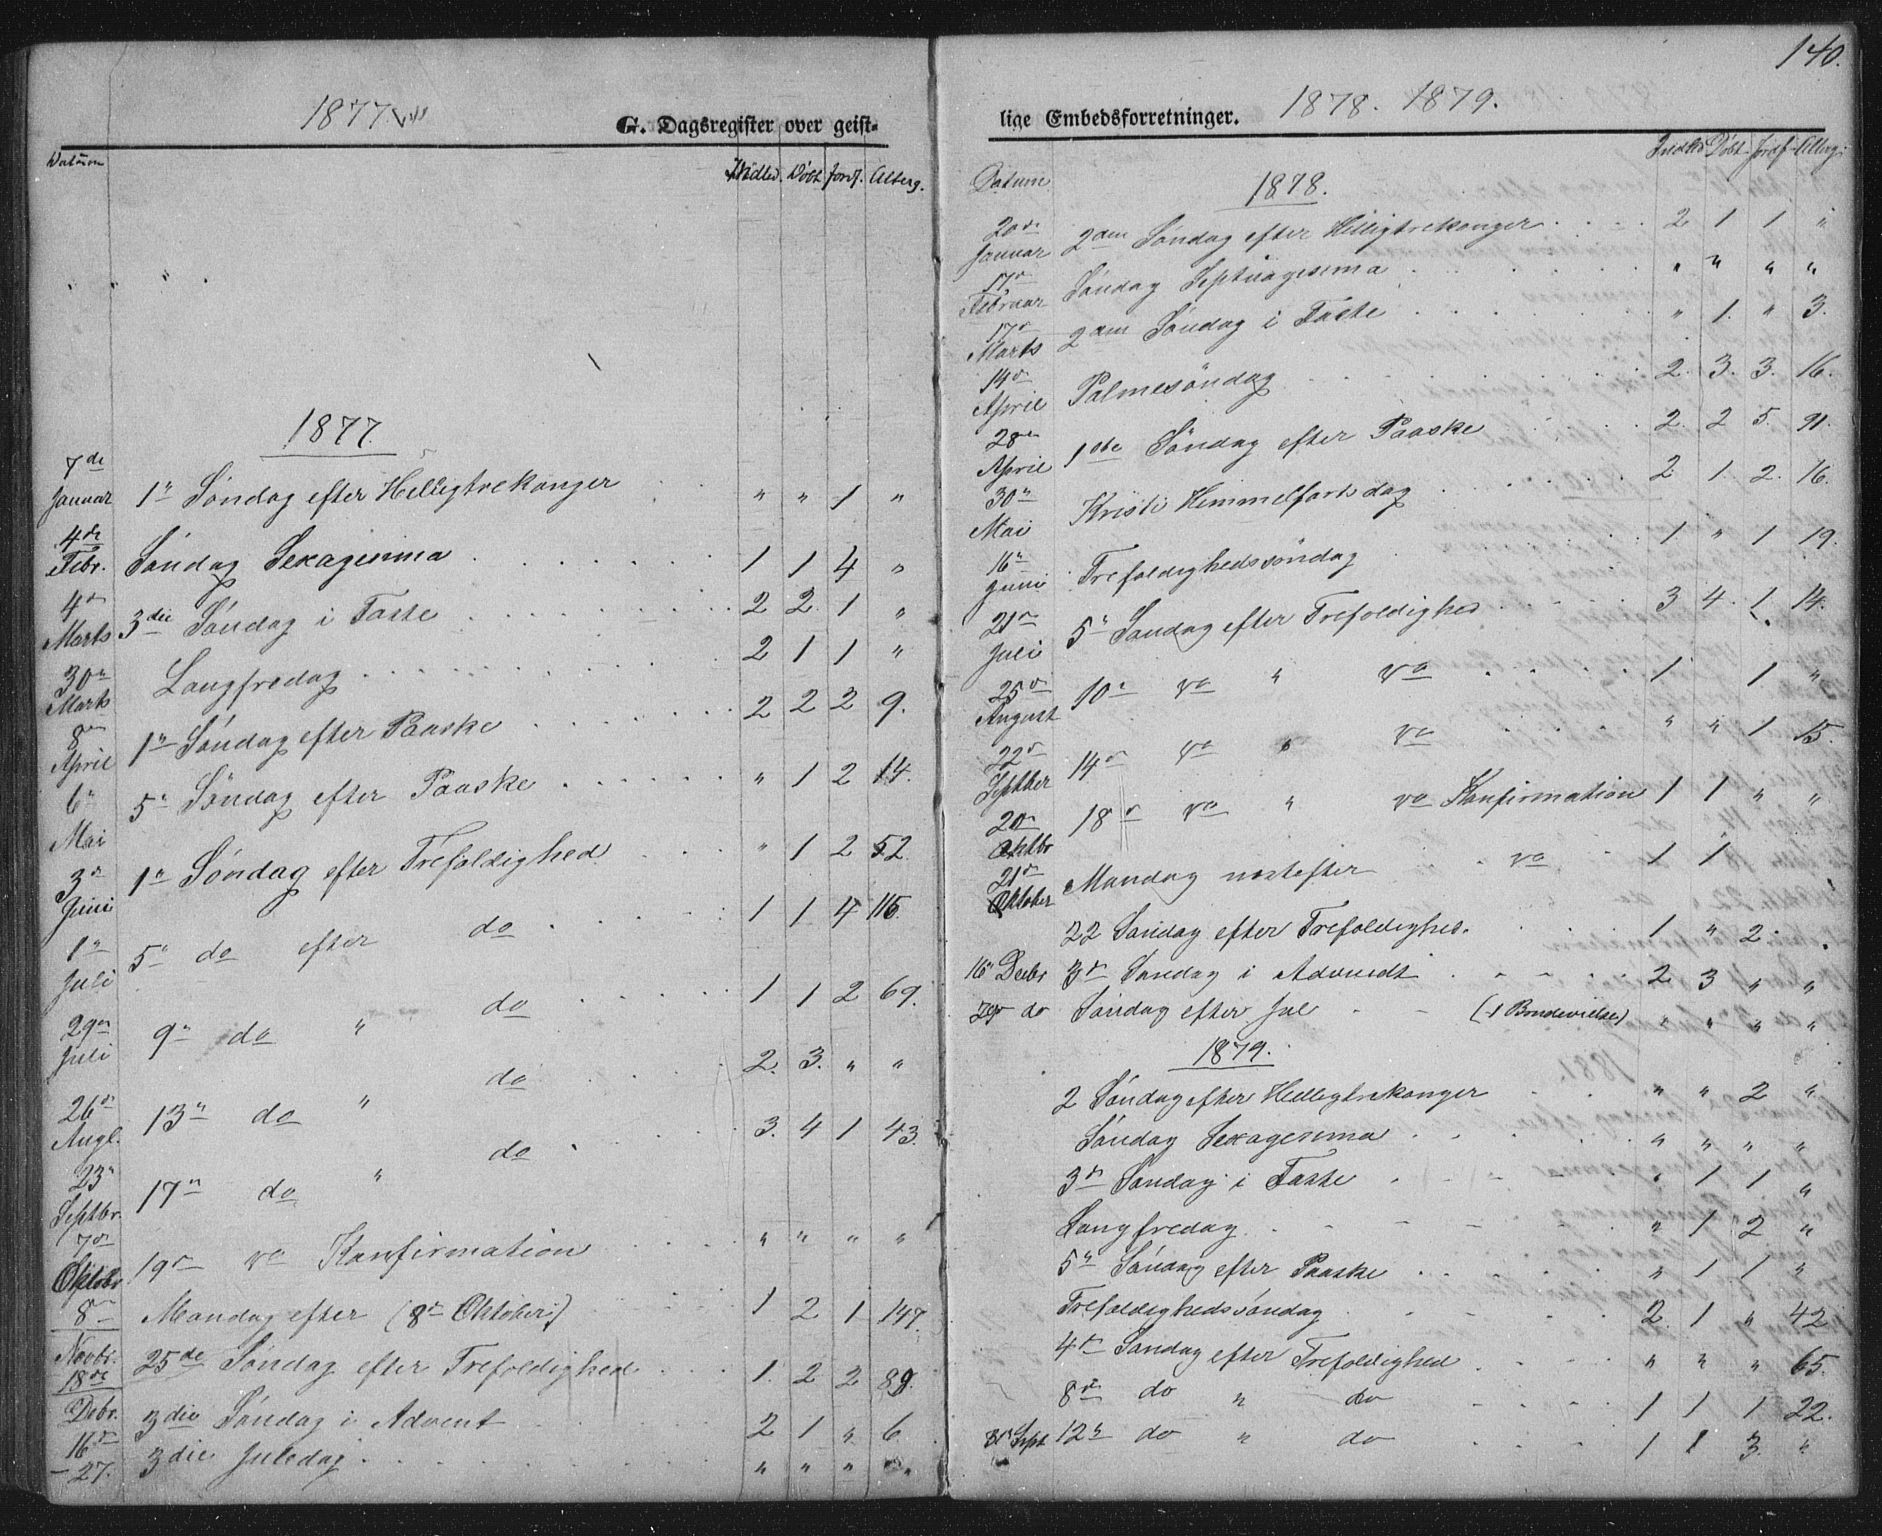 1877
G. Dagsregister over geist-
Datum Indled. Døbt Jordf. Alterg.
1877.
7de Januar 1ste Søndag efter Helligtrekonger . . " " 1 "
4de Febr. Søndag Sexagesima . . . . . . 1 1 4 "
4de Marts 3die Søndag i Faste . . . . . . 2 2. 1 "
30te Marts Langfredag . . . . . . 2 1 1 "
8de April 1ste Søndag efter Paaske . . . . . . 2 2 2 9.
6te Mai 5te Søndag efter Paaske . . . . . " 1 2 14.
3die Juni 1ste Søndag efter Trefoldighed . . . " 1 2 52.
1ste Juli 5te do efter do . . . . . 1 1 4 115.
29de Juli 9de do " do . . . . . 1 1 2 69.
26de Augt. 13de do " do . . . . 2. 3. " "
23de Septbr. 17de do " do . . . 3. 4 1 43.
7de Oktobr 19de do Konfirmation . . . . " " " "
8de Mandag efter (8de Oktober) . . . . 1 2 1 147.
Novbr. 18de 25de Søndag efter Trefoldighed . . . 1. 2 2 89.
Debr. 16de 3die Søndag i Advent . . . . 2 1 " 6.
- 27. 3die Juledag . . . . . . " " " "
140.
lige Embedsforretninger. 1878. 1879.
Datum Indled Døbt Jordf Alterg.
1878.
20de Januar 2den Søndag efter Helligtrekonger . . . . 2 1 1 "
17de Februar Søndag Septuagesima . . . . . " " " "
17de Marts 2den Søndag i Faste . . . . . . " 1. " 3.
14de April Palmesöndag . . . . . . 2. 3. 3. 16.
28de April 1ste Søndag efter Paaske . . . . 2. 2 5. 91.
30te Mai Kristi Himmelfartsdag . . . . . 2 1. 2. 16.
16de Juni Trefoldighedssøndag . . . . . 1 " 1 19.
21de Juli 5te Søndag efter Trefoldighed . . . . 3 4. 1. 14.
25de August 10de do " do . . . . 1 1 "
22de Septbr 14de do " do . . . . " " 1 15.
20de Oktbr 18de do " do Konfirmation 1 1 " "
21de Oktober Mandag næstefter . do . 1 1
22 Søndag efter Trefoldighed. . . . 1 " 2. .
16de Decbr 3de Søndag i Advendt . . . . 2 3 " "
29de do Søndag efter Jul - - (1 Brudevielse) " " " "
1879.
2 Søndag efter Helligtrekonger . . . " " 2 "
Søndag Sexagesima . . . . . " " " "
3de Søndag i Faste . . . . . " 1 1 "
Langfredag . . . . . . " 1 2 "
5te Søndag efter Paaske . . . . . " 1 1 "
Trefoldighedssøndag . . . . . 2. 1 " 42
4de Søndag efter Trefoldighed . . . . " " " 65.
8de do " do . . . . 1 1 1 22.
Sept 12te do " do . . . . 1 1 3. "